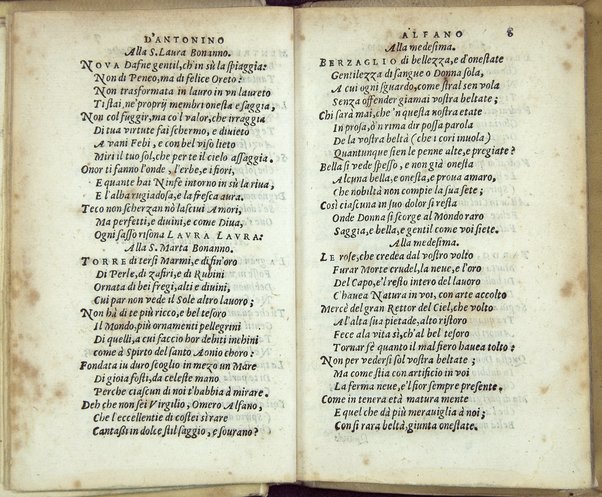 D'ANTONINO
Alla S. Laura Bonanno.
NOVA Dafne gentil, ch'in sù la spiaggia
Non di Peneo, ma di felice Oreto:
Non trasformata in lauro in vn laureto
Ti stai, ne' proprij membri onesta e saggia,
Non col fuggir, ma co'l valor, che irraggia
Di tua virtute fai schermo, e diuieto
A vani Febi, e con bel viso lieto
Miri il tuo sol, che per te il cielo assaggia.
Onor ti fanno l'onde, l'erbe, e i fiori,
E quante hai Ninfe intorno in sù la riua,
E l'alba rugiadosa, e la fresca aura.
Teco non scherzan nò lasciui Amori,
Ma perfetti, e diuini, e come Diua,
Ogni sasso risona LAVRA LAVRA.
Alla S. Marta Bonanno.
TORRE di tersi Marmi, e di fin'oro
Di Perle, di zafiri, e di Rubini
Ornata di bei fregi, alti e diuini,
Cui par non vede il Sole altro lauoro;
Non hà di te più ricco, e bel tesoro
Il Mondo, più ornamenti pellegrini
Di quelli, a cui faccio hor debiti inchini
come à Spirto del santo Aonio choro:
Fondata iu duro scoglio in mezo un Mare
Di gioia fosti, da celeste mano
Perche ciascun di noi t'habbia à mirare.
Deh che non sei Virgilio, Omero Alfano,
Che l'eccellentie di costei sì rare
Cantassi in dolce stil saggio, e sourano?
ALFANO 8
Alla medesima.
BERZAGLIO di bellezza, e d'onestate
Gentilezza di sangue o Donna sola,
A cui ogni sguardo, come stral sen vola
Senza offender giamai vostra beltate;
Chi sarà mai, che 'n questa nostra etate
In prosa, ò'n rima dir possa parola
De la vostra beltà (che i cori inuola)
Quantunque sien le penne alte, e pregiate?
Bella si vede spesso, e non già onesta
Alcuna bella, e onesta, e proua amaro,
Che nobiltà non compie la sua sete;
Così ciascuna in suo dolor si resta
Onde Donna si scorge al Mondo raro
Saggia, e bella, e gentil come voi siete.
Alla medesima.
LE rose, che credea dal vostro volto
Furar Morte crudel, la neue, e l'oro
Del Capo, e'l resto intero del lauoro
C'hauea Natura in voi, con arte accolto
Mercè del gran Rettor del Ciel, che volto
A l'alta sua pietade, alto ristoro
Fece ala vita sì, ch'al bel tesoro
Tornar se quanto il mal fiero hauea tolto:
Non per vedersi sol vostra beltate;
Ma come stia con artificio in voi
La ferma neue, e'l fior sempre presente.
Come in tenera età matura mente
E quel che dà più merauiglia à noi;
Con sì rara beltà, giunta onestate.